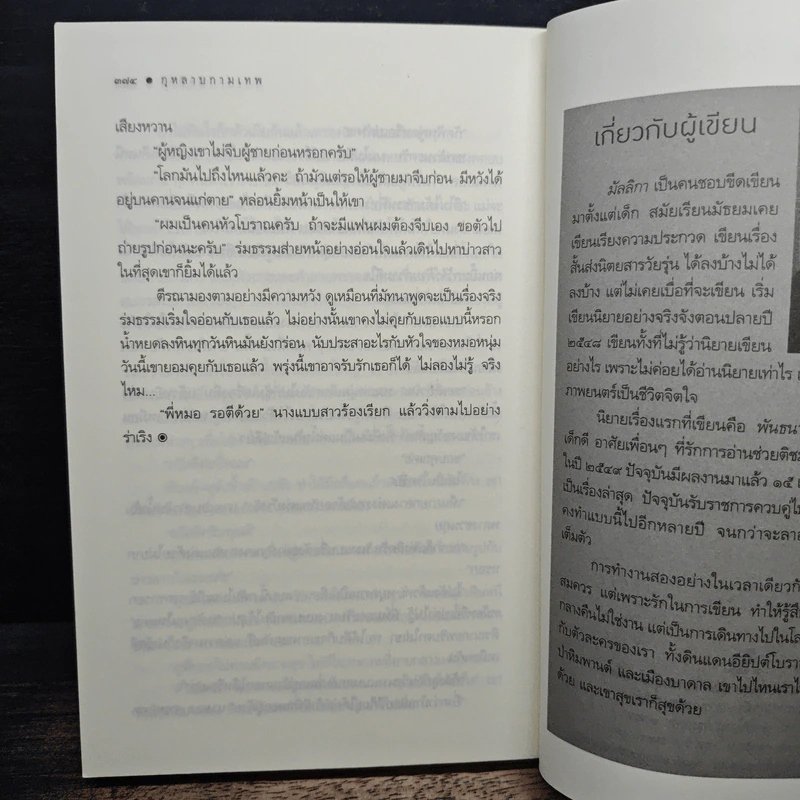 ๓๗๔ ● กุหลาบกามเทพ
เสียงหวาน
"ผู้หญิงเขาไม่จีบผู้ชายก่อนหรอกครับ"
"โลกมันไปถึงไหนแล้วคะ ถ้ามัวแต่รอให้ผู้ชายมาจีบก่อน มีหวังได้
อยู่บนคานจนแก่ตาย" หล่อนยิ้มหน้าเป็นให้เขา
"ผมเป็นคนหัวโบราณครับ ถ้าจะมีแฟนผมต้องจีบเอง ขอตัวไป
ถ่ายรูปก่อนนะครับ" ร่มธรรมส่ายหน้าอย่างอ่อนใจแล้วเดินไปหาบ่าวสาว
ในที่สุดเขาก็ยิ้มได้แล้ว
ตีรณามองตามอย่างมีความหวัง ดูเหมือนที่มัทนาพูดจะเป็นเรื่องจริง
ร่มธรรมเริ่มใจอ่อนกับเธอแล้ว ไม่อย่างนั้นเขาคงไม่คุยกับเธอแบบนี้หรอก
น้ำหยดลงหินทุกวันหินมันยังกร่อน นับประสาอะไรกับหัวใจของหมอหนุ่ม
วันนี้เขายอมคุยกับเธอแล้ว พรุ่งนี้เขาอาจรับรักเธอก็ได้ ไม่ลองไม่รู้ จริง
ไหม...
"พี่หมอ รอตีด้วย" นางแบบสาวร้องเรียก แล้ววิ่งตามไปอย่าง
ร่าเริง ◉
เกี่ยวกับผู้เขียน
มัลลิกา เป็นคนชอบขีดเขียน
มาตั้งแต่เด็ก สมัยเรียนมัธยมเคย
เขียนเรียงความประกวด เขียนเรื่อง
สั้นส่งนิตยสารวัยรุ่น ได้ลงบ้างไม่ได้
ลงบ้าง แต่ไม่เคยเบื่อที่จะเขียน เริ่ม
เขียนนิยายอย่างจริงจังตอนปลายปี
๒๕๔๘ เขียนทั้งที่ไม่รู้ว่านิยายเขียน
อย่างไร เพราะไม่ค่อยได้อ่านนิยายเท่าไร
ภาพยนตร์เป็นชีวิตจิตใจ
นิยายเรื่องแรกที่เขียนคือ
เด็กดี อาศัยเพื่อนๆ ที่รักการอ่านช่วย
ในปี ๒๕๔๙ ปัจจุบันมีผลงานมาแล้ว ๑๕
เป็นเรื่องล่าสุด ปัจจุบันรับราชการควบคู่
คงทำแบบนี้ไปอีกหลายปี จนกว่าจะ
เต็มตัว
การทำงานสองอย่างในเวลาเดียว
สมควร แต่เพราะรักในการเขียน ทำให้
กลางคืนไม่ใช่งาน แต่เป็นการเดินทางไปใน
กับตัวละครของเรา ทั้งดินแดนอียิปต์
ป่าหิมพานต์ และเมืองบาดาล เขาไปไหนเรา
ด้วย และเขาสุขเราก็สุขด้วย